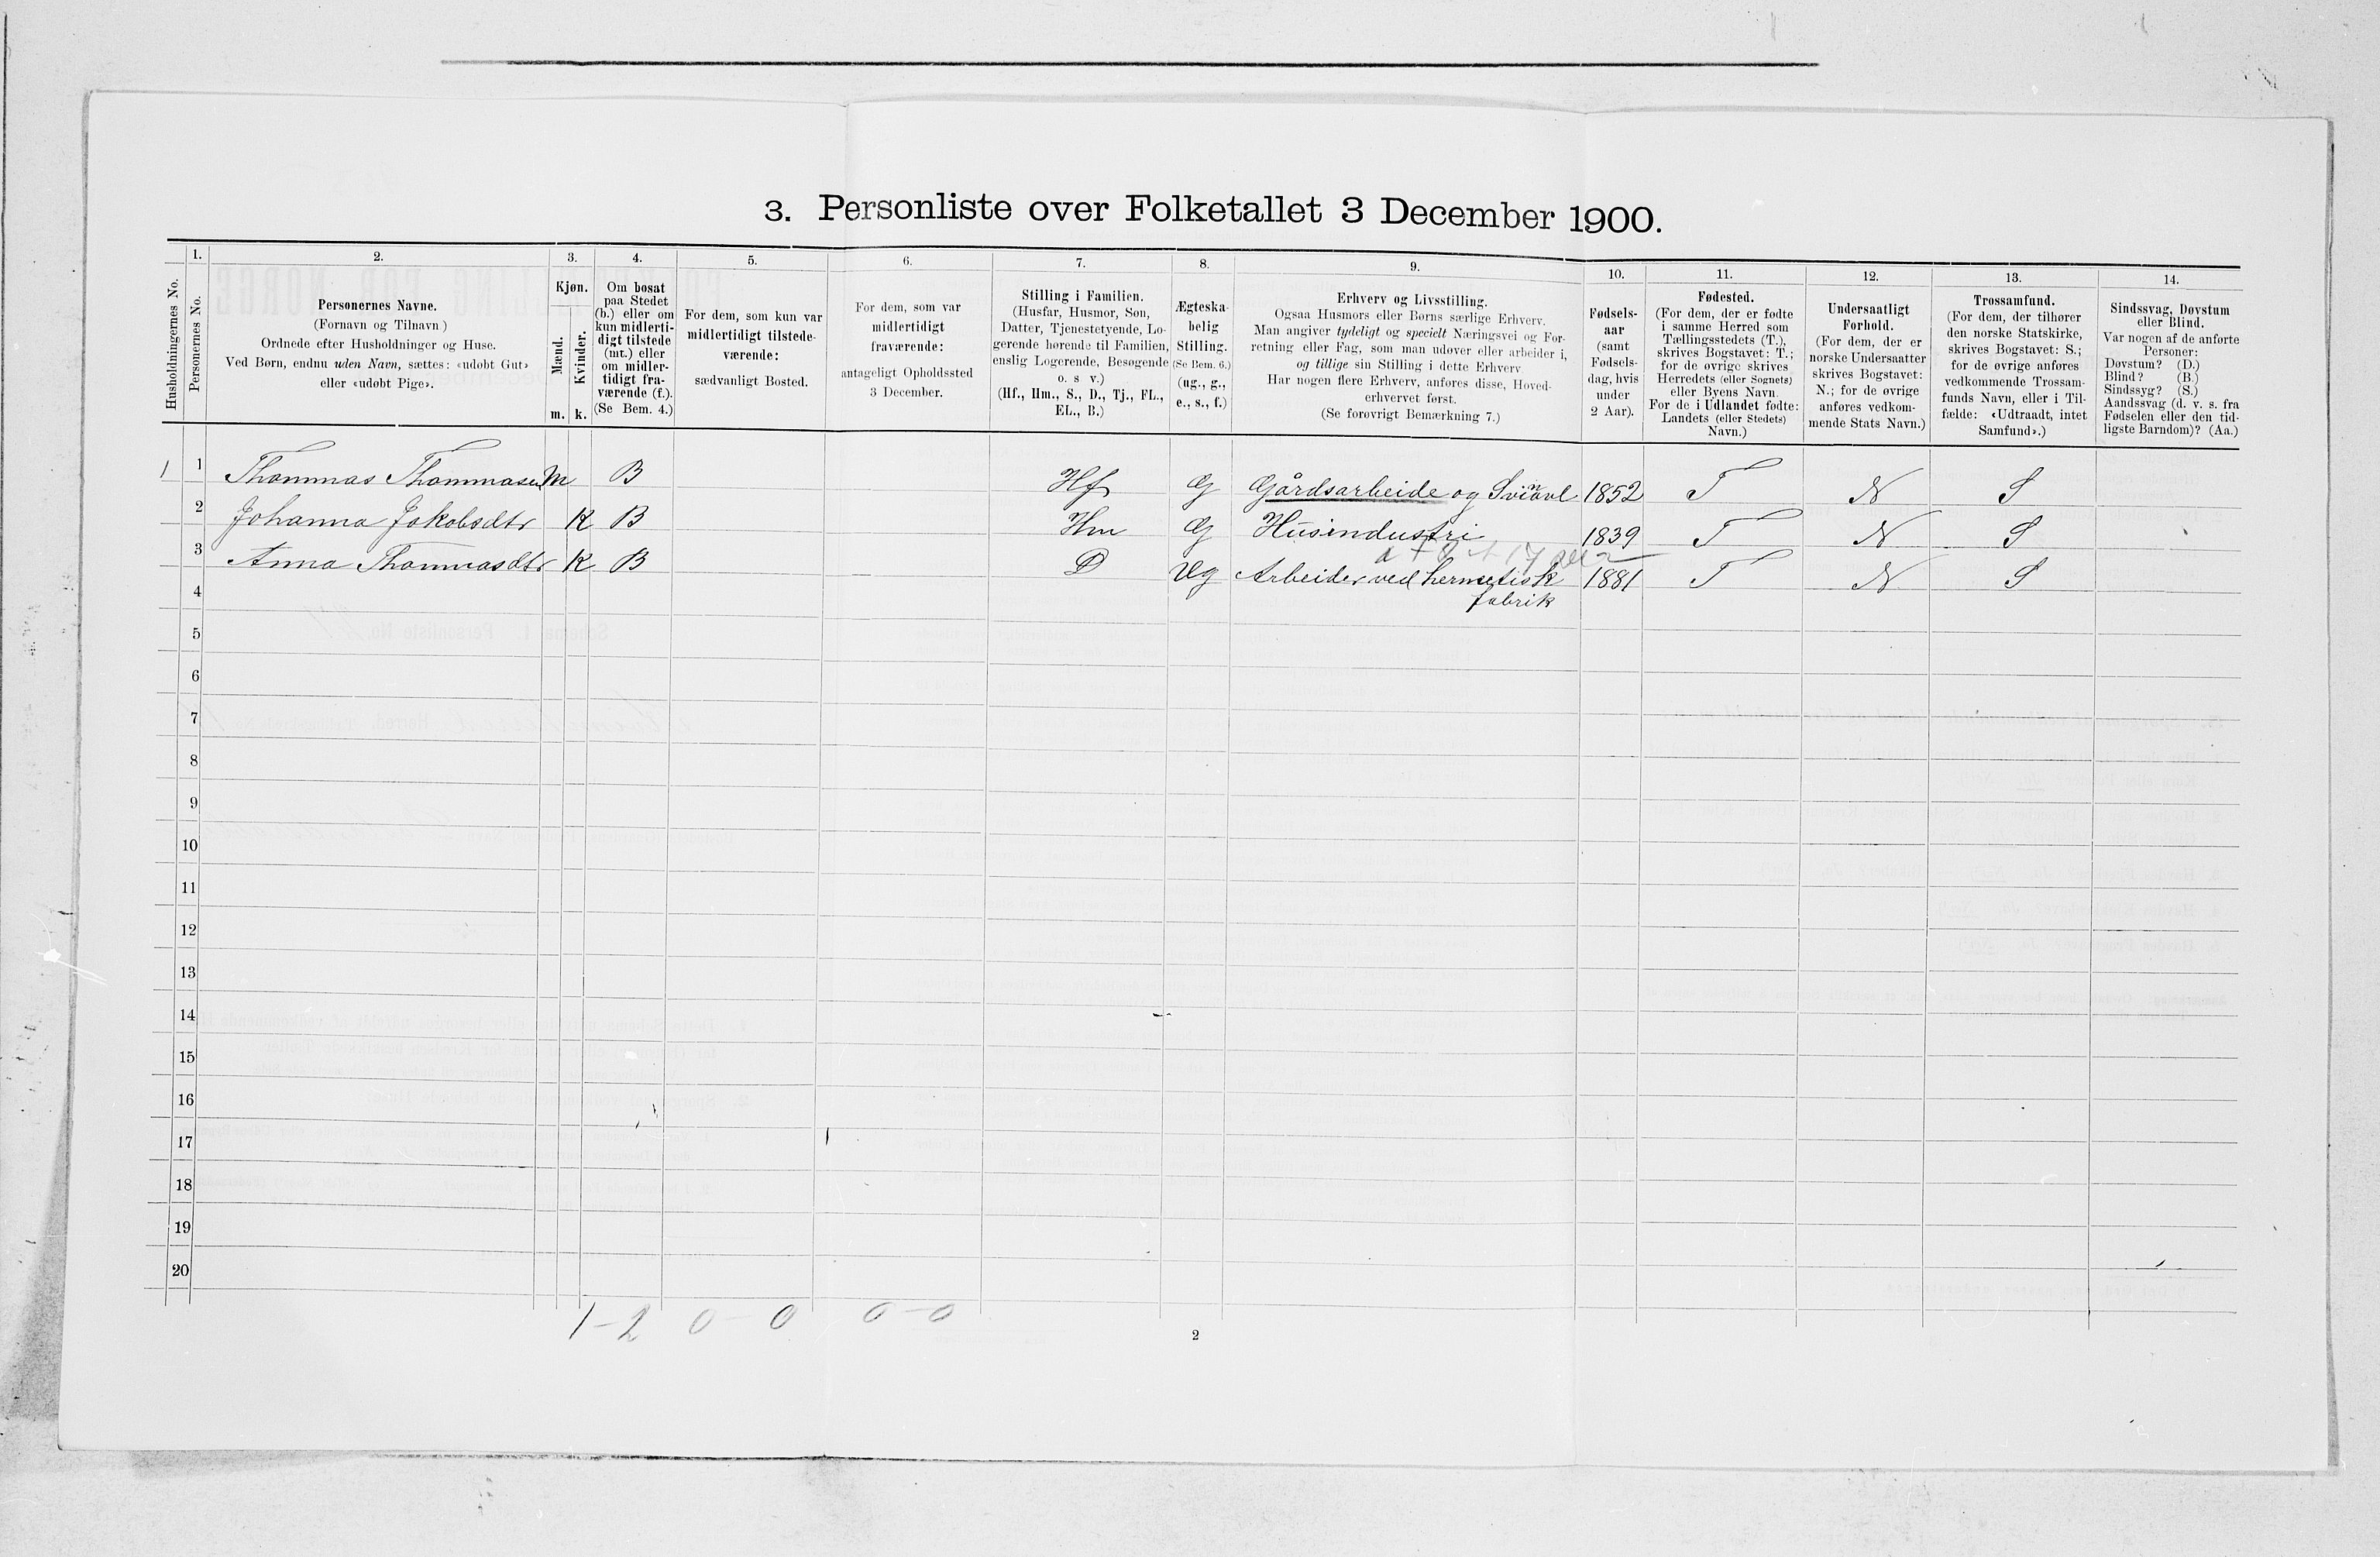 3. Personliste over Folketallet 3 December 1900.
1. 2. 3. 4. 5. 6. 7. 8. 9. 10. 11. 12. 13. 14.
Husholdningernes No.
Personernes No.
Personernes Navne.
(Fornavn og Tilnavn)
Ordnede efter Husholdninger og Huse.
Ved Børn, endnu uden Navn, sættes: «udøbt Gut»
eller «udøbt Pige».
Kjøn.
Mænd.
Kvinder.
m. k.
Om bosat
paa Stedet
(b.) eller om
kun midlerti-
digt tilstede
(mt.) eller
om midler-
tidigt fra-
værende (f.).
(Se Bem. 4.)
For dem, som kun var
midlertidigt tilstede-
værende:
sædvanligt Bosted.
For dem, som var
midlertidigt
fraværende:
antageligt Opholdssted
3 December.
Stilling i Familien.
(Husfar, Husmor, Søn,
Datter, Tjenestetyende, Lo-
gerende hørende til Familien,
enslig Logerende, Besøgende
o. s v.)
(Hf., Hm., S., D., Tj., FL.,
EL., B.)
Ægteska-
belig
Stilling.
(Se Bem. 6.)
(ug., g.,
e., s., f.)
Erhverv og Livsstilling.
Ogsaa Husmors eller Børns særlige Erhverv.
Man angiver tydeligt og specielt Næringsvei og For-
retning eller Fag, som man udøver eller arbeider i,
og tillige sin Stilling i dette Erhverv
Har nogen flere Erhverv, anføres disse, Hoved-
erhvervet først.
(Se forøvrigt Bemærkning 7.)
Fødsels-
aar
(samt
Fødsels-
dag, hvis
under
2 Aar).
Fødested.
(For dem, der er fødte
i samme Herred som
Tællingsstedets (T.),
skrives Bogstavet: T.;
for de øvrige skrives
Herredets (eller Sognets)
eller Byens Navn.
For de i Udlandet fødte:
Landets (eller Stedets)
Navn.)
Undersaatligt
Forhold.
(For dem, der er
norske Undersaatter
skrives Bogstavet:
N.; for de øvrige
anføres vedkom-
mende Stats Navn.)
Trossamfund.
(For dem, der tilhører
den norske Statskirke,
skrives Bogstavet: S.;
for de øvrige anføres
vedkommende Trossam-
funds Navn, eller i Til-
fælde: «Udtraadt, intet
Samfund».)
Sindssvag, Døvstum
eller Blind.
Var nogen af de anførte
Personer:
Døvstum? (D.)
Blind? (B.)
Sindssyg? (S.)
Aandssvag (d. v. s. fra
Fødselen eller den tid-
ligste Barndom)? (Aa.)
1 1 Thommas Thommasen M B Hf G Gårdsarbeide og Svinavl 1852 T N S
2 Johanna Jakobsdtr K B Hm G Husindustri 1839 T N S
3 Anna Thommasdtr K B D Ug Arbeider ved hermetisk 1881 T N S
fabrik
4
5
6
7
8
9
10
11
12
13
14
15
16
17
18
19
20
1-2 0-0 0-0
2